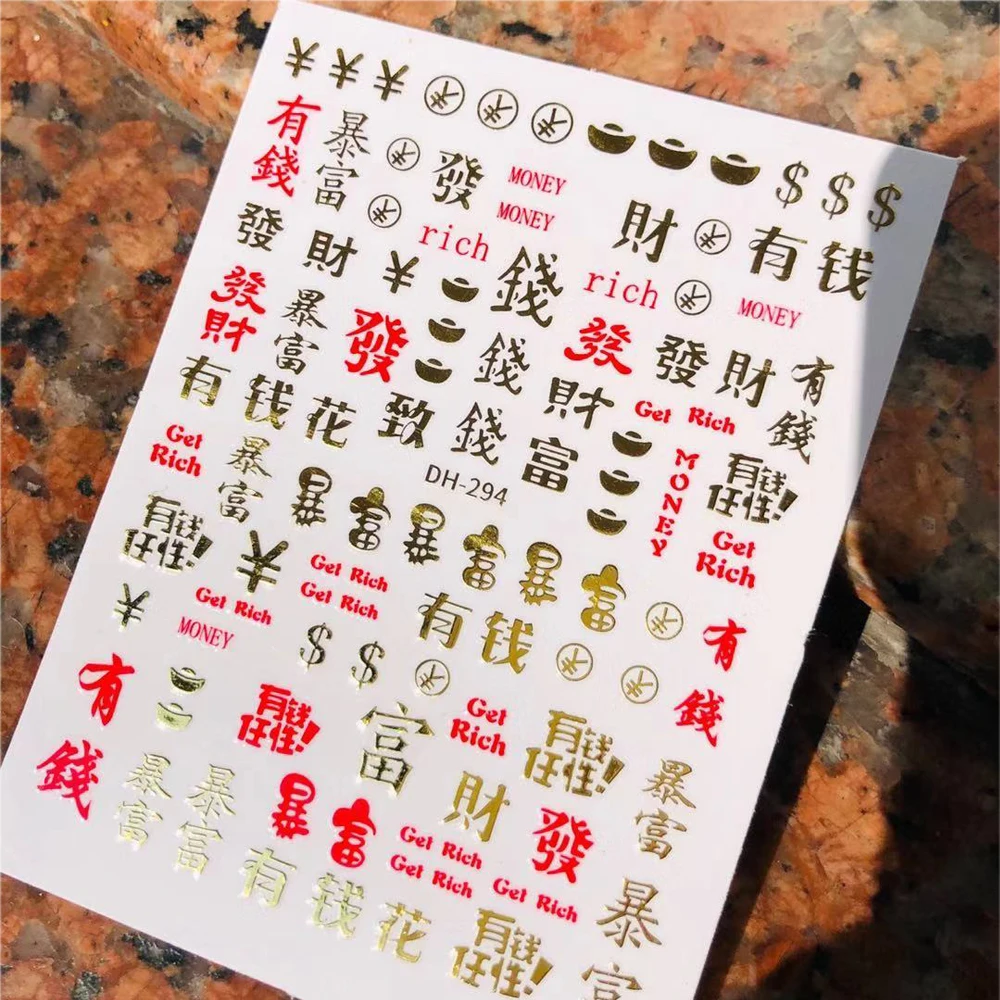 ¥ ¥ ¥ $ $ $
有錢 暴富 發 MONEY
MONEY
財 有钱
發 財 ¥ rich 錢 rich MONEY
發財 暴富 發 錢 發 發 財 有錢
有钱花 致 錢 財 Get Rich
富
Get Rich 暴富 DH-294 MONEY 有錢任性!
暴富 暴富 暴富 Get Rich
有錢任性! ¥ Get Rich
Get Rich
¥ Get Rich 有钱 有錢
MONEY $ $
有錢 有錢任性! 富 Get Rich 有錢任性! 暴富
暴富 暴富 暴富 財 發
Get Rich
Get Rich Get Rich
有钱花 有錢任性! 暴富